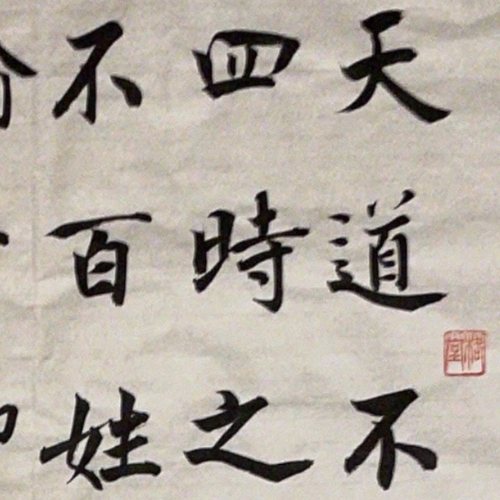 天道不
四時之
不百姓